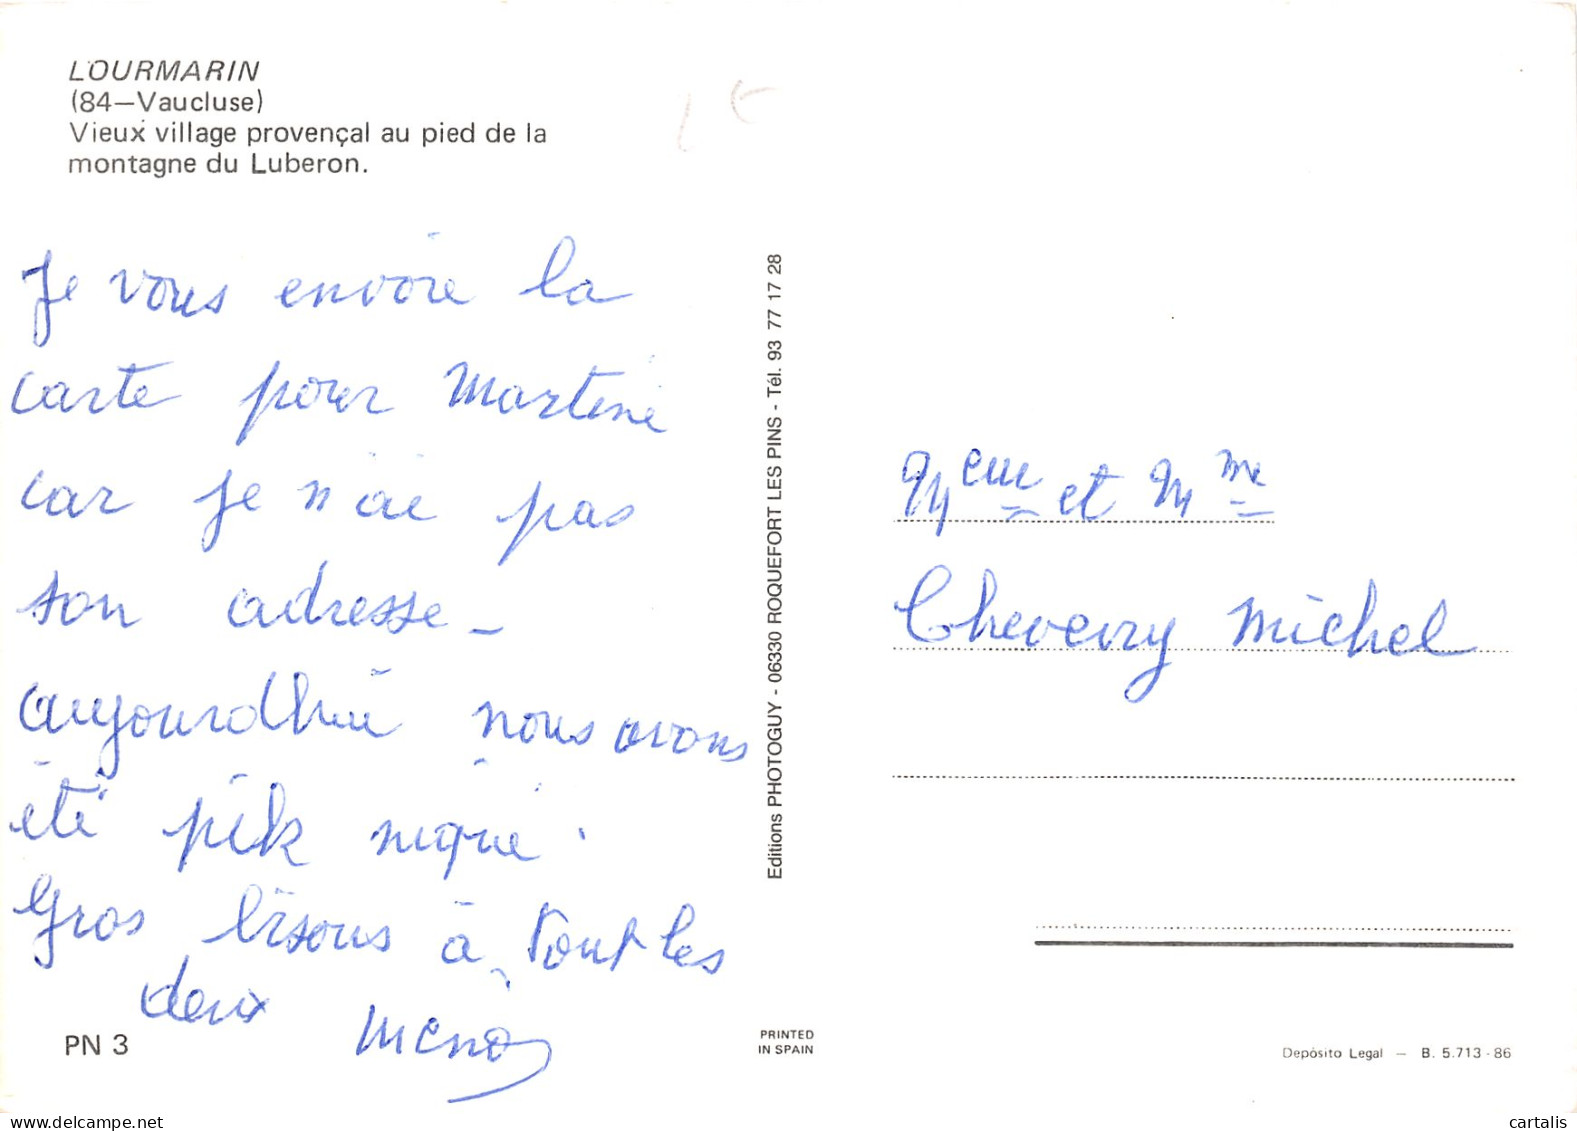 LOURMARIN
(84—Vaucluse)
Vieux village provençal au pied de la
montagne du Luberon.
Je vous envoie la
carte pour Martine
car je n'ai pas
son adresse_
aujourd'hui nous avons
été pik nique.
Gros bisous à tout les
deux
PN 3
Editions PHOTOGUY - 06330 ROQUEFORT LES PINS - Tél. 93 77 17 28
PRINTED
IN SPAIN
Meur et Mme
Cheveiry Michel
Depósito Legal — B. 5.713 - 86
delcampe.net
cartalis